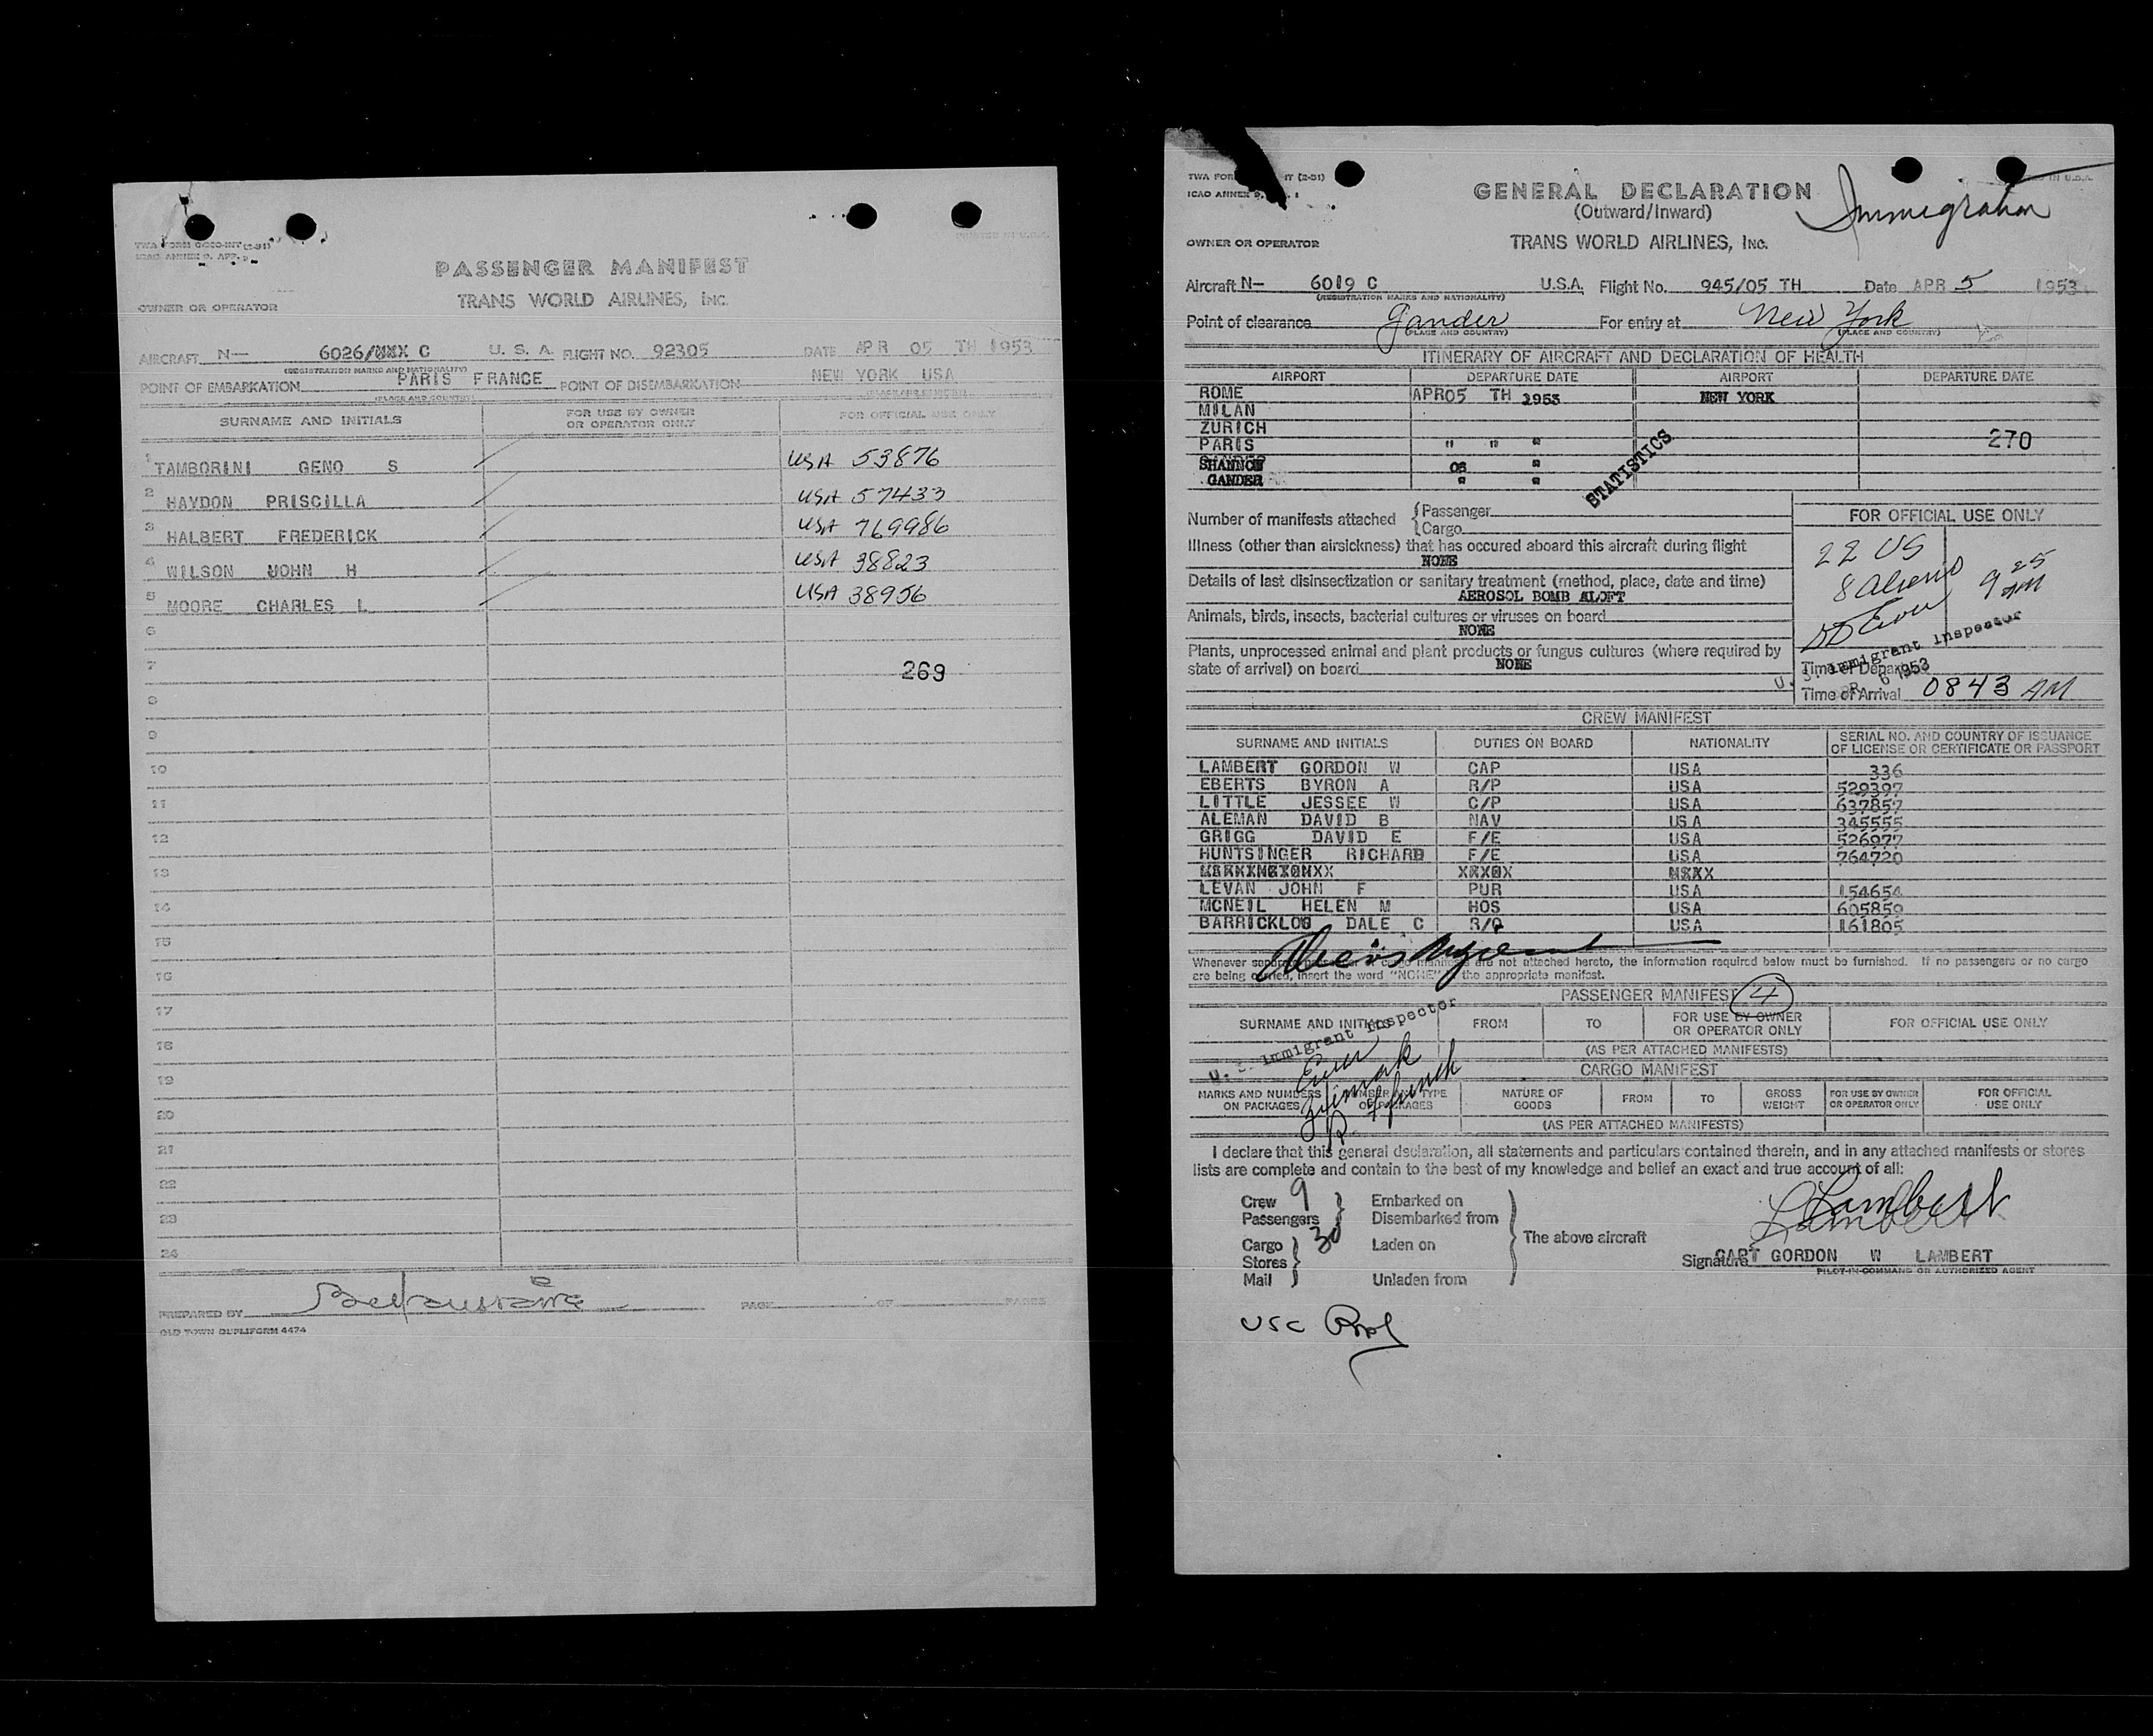 TWA FORM G020-INT (2-51)
ICAO ANNEX 9, APP.
PASSENGER MANIFEST
OWNER OR OPERATOR
TRANS WORLD AIRLINES, INC.
AIRCRAFT N— 6026/XXX C U. S. A. FLIGHT NO. 92305 DATE APR 05 TH 1953
(REGISTRATION MARKS AND NATIONALITY)
POINT OF EMBARKATION PARIS FRANCE POINT OF DISEMBARKATION NEW YORK USA
(PLACE AND COUNTRY) (PLACE AND COUNTRY)
SURNAME AND INITIALS FOR USE BY OWNER OR OPERATOR ONLY FOR OFFICIAL USE ONLY
1 TAMBORINI GENO S USA 53876
2 HAYDON PRISCILLA USA 57433
3 HALBERT FREDERICK USA 769986
4 WILSON JOHN H USA 38823
5 MOORE CHARLES L USA 38956
6
7 269
8
9
10
11
12
13
14
15
16
17
18
19
20
21
22
23
24
PREPARED BY PAGE OF PAGES
OLD TOWN DUPLIFORM 4474
TWA FORM INT (2-51)
ICAO ANNEX 9,
GENERAL DECLARATION
(Outward/Inward)
Immigration
OWNER OR OPERATOR
TRANS WORLD AIRLINES, INC.
Aircraft N— 6019 C U.S.A. Flight No. 945/05 TH Date APR 5 1953
(REGISTRATION MARKS AND NATIONALITY)
Point of clearance Gander For entry at New York
(PLACE AND COUNTRY) (PLACE AND COUNTRY)
ITINERARY OF AIRCRAFT AND DECLARATION OF HEALTH
AIRPORT DEPARTURE DATE AIRPORT DEPARTURE DATE
ROME APR05 TH 1953 NEW YORK
MILAN
ZURICH
PARIS " " " 270
SHANNON 06 "
GANDER " "
STATISTICS
Number of manifests attached { Passenger
Cargo
FOR OFFICIAL USE ONLY
Illness (other than airsickness) that has occured aboard this aircraft during flight
NONE
22 US
8 Aliens
9 25 AM
Details of last disinsectization or sanitary treatment (method, place, date and time)
AEROSOL BOMB ALOFT
Animals, birds, insects, bacterial cultures or viruses on board
NONE
Plants, unprocessed animal and plant products or fungus cultures (where required by
state of arrival) on board NONE
U. S. Immigrant Inspector
Time of Departure
6 1953
Time of Arrival 0843 AM
CREW MANIFEST
SURNAME AND INITIALS DUTIES ON BOARD NATIONALITY SERIAL NO. AND COUNTRY OF ISSUANCE OF LICENSE OR CERTIFICATE OR PASSPORT
LAMBERT GORDON W CAP USA 336
EBERTS BYRON A R/P USA 529397
LITTLE JESSEE W C/P USA 637857
ALEMAN DAVID B NAV USA 345555
GRIGG DAVID E F/E USA 526977
HUNTSINGER RICHARD F/E USA 764720
LEVAN JOHN F PUR USA 154654
MCNEIL HELEN M HOS USA 605859
BARRICKLOW DALE C R/O USA 161805
Whenever separate passenger or cargo manifests are not attached hereto, the information required below must be furnished. If no passengers or no cargo
are being carried, insert the word "NONE" in the appropriate manifest.
PASSENGER MANIFEST 4
SURNAME AND INITIALS FROM TO FOR USE BY OWNER OR OPERATOR ONLY FOR OFFICIAL USE ONLY
U. S. Immigrant Inspector
(AS PER ATTACHED MANIFESTS)
CARGO MANIFEST
MARKS AND NUMBERS ON PACKAGES NUMBER AND TYPE OF PACKAGES NATURE OF GOODS FROM TO GROSS WEIGHT FOR USE BY OWNER OR OPERATOR ONLY FOR OFFICIAL USE ONLY
(AS PER ATTACHED MANIFESTS)
I declare that this general declaration, all statements and particulars contained therein, and in any attached manifests or stores
lists are complete and contain to the best of my knowledge and belief an exact and true account of all:
Crew 9 Embarked on
Passengers 30 Disembarked from
Cargo Laden on The above aircraft
Stores
Mail Unladen from
G Lambert
Signature CAPT GORDON W LAMBERT
PILOT-IN-COMMAND OR AUTHORIZED AGENT
USC